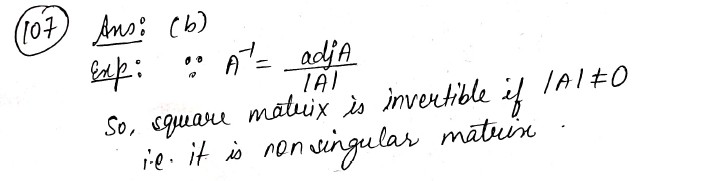 (107) Ans: (b)
Exp: ∵ A⁻¹ = adjA / |A|
So, square matrix is invertible if |A| ≠ 0
i.e. it is non singular matrix.